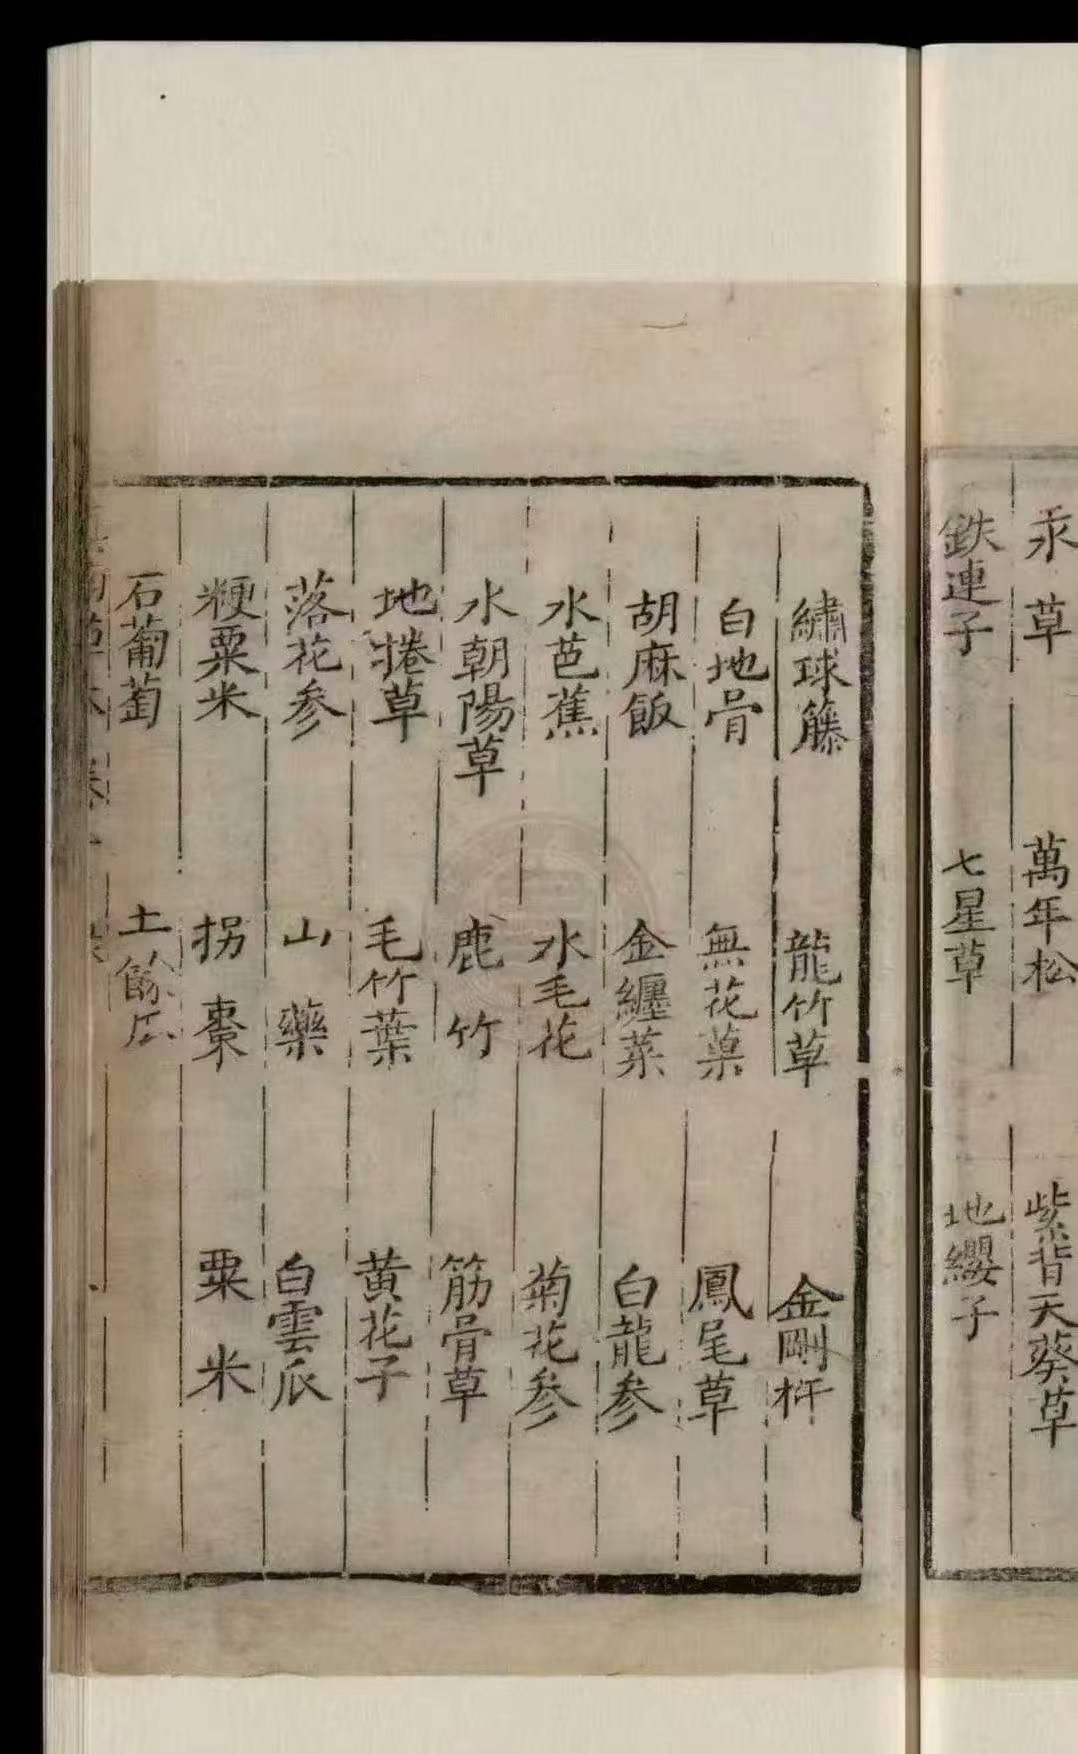 汞草　萬年松　紫背天葵草
鉄連子　七星草　地纓子
繡球籐　龍竹草　金剛杵
白地骨　無花菓　鳳尾草
胡麻飯　金纏菜　白龍参
水芭蕉　水毛花　菊花参
水朝陽草　鹿竹　筋骨草
地捲草　毛竹葉　黄花子
落花参　山藥　白雲瓜
粳粟米　拐棗　粟米
石葡萄　土餘瓜